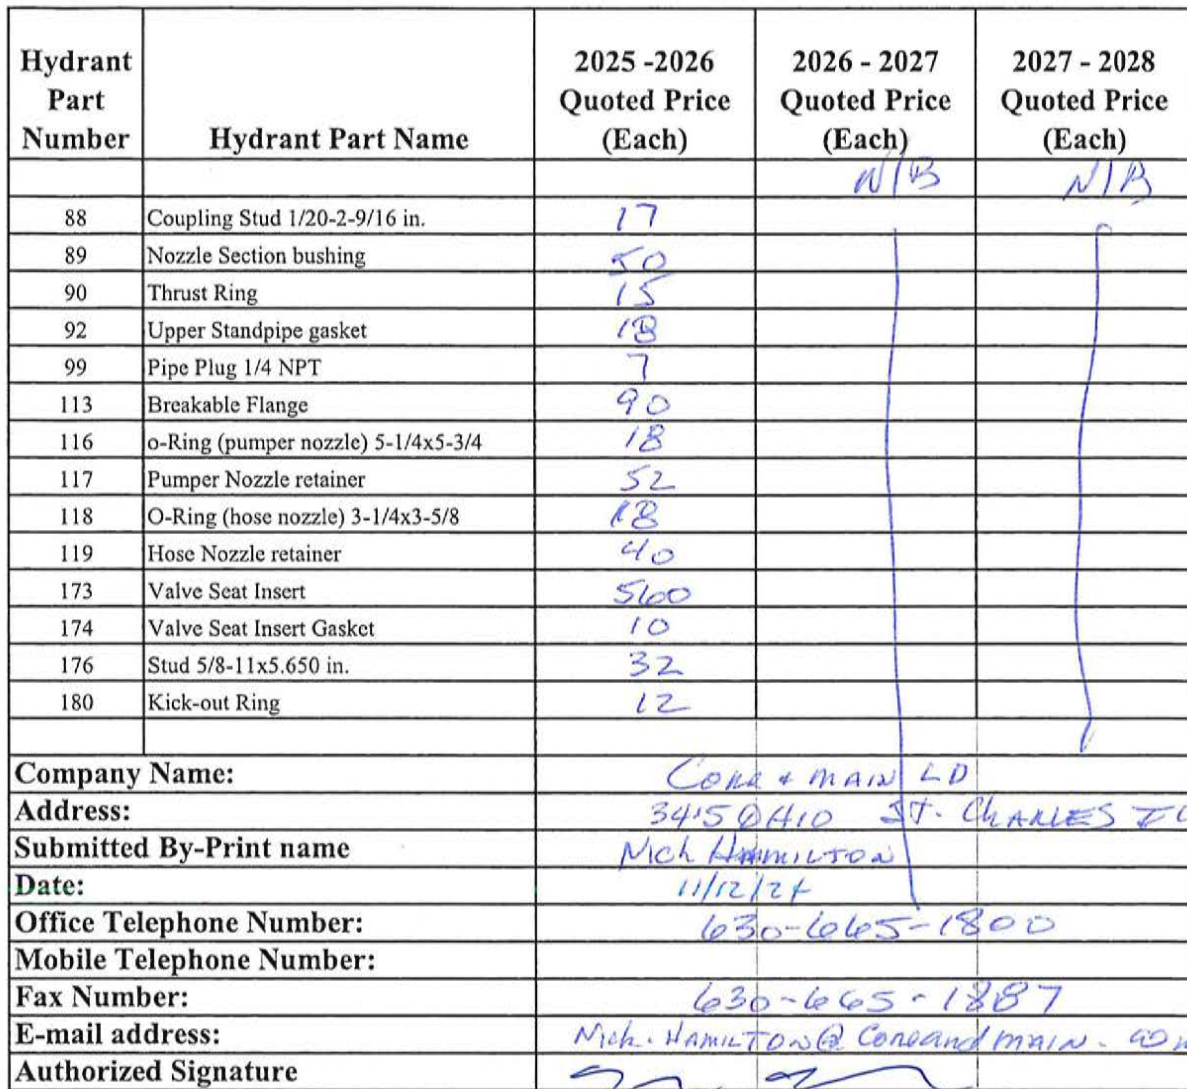 Hydrant Part Number Hydrant Part Name 2025 -2026 Quoted Price (Each) 2026 - 2027 Quoted Price (Each) 2027 - 2028 Quoted Price (Each)
N/B N/B
88 Coupling Stud 1/20-2-9/16 in. 17
89 Nozzle Section bushing 50
90 Thrust Ring 15
92 Upper Standpipe gasket 18
99 Pipe Plug 1/4 NPT 7
113 Breakable Flange 90
116 o-Ring (pumper nozzle) 5-1/4x5-3/4 18
117 Pumper Nozzle retainer 52
118 O-Ring (hose nozzle) 3-1/4x3-5/8 18
119 Hose Nozzle retainer 40
173 Valve Seat Insert 560
174 Valve Seat Insert Gasket 10
176 Stud 5/8-11x5.650 in. 32
180 Kick-out Ring 12
Company Name: Core & Main
Address: 3415 OHIO ST. CHARLES IL
Submitted By-Print name Nick HAMILTON
Date: 11/12/24
Office Telephone Number: 630-665-1800
Mobile Telephone Number:
Fax Number: 630-665-1887
E-mail address: Nick.HAMILTON@Coreandmain.com
Authorized Signature